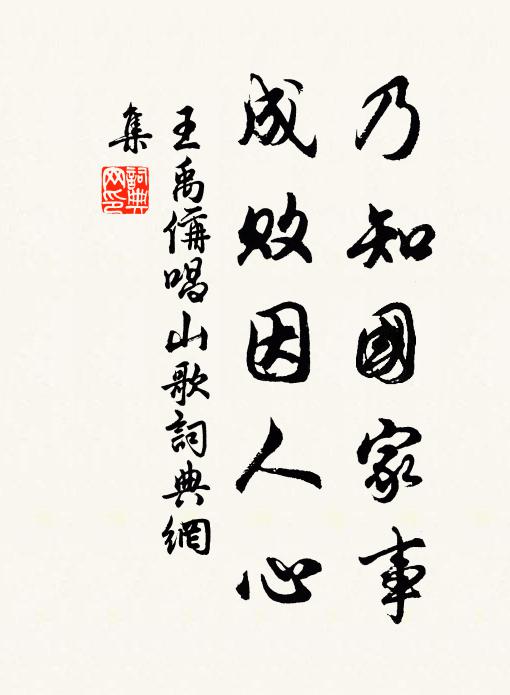 乃知國家事
成敗因人心
王禹偁唱山歌詞典網
集
詞典
网印